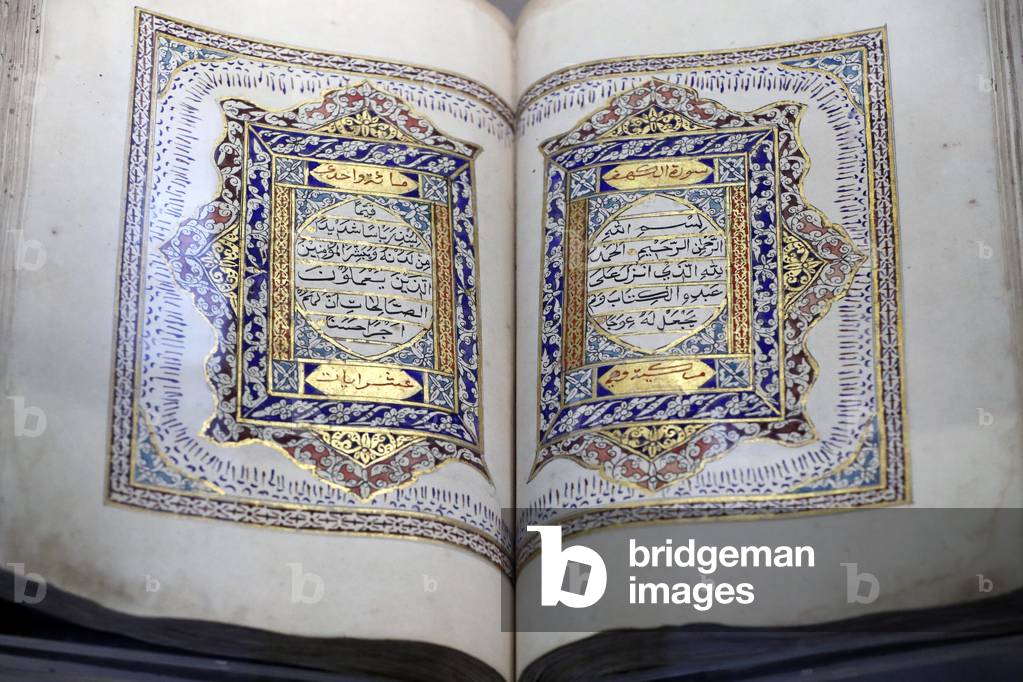 سورة الكهف
بسم الله
الرحمن الرحيم الحمد
لله الذي انزل على
عبده الكتاب ولم
يجعل له عوجا
مكية وهي
مائة واحد
قيما
لينذر باسا شديدا
من لدنه ويبشر المؤمنين
الذين يعملون
الصالحات ان لهم
اجرا حسنا
عشر ايات
bridgeman
images